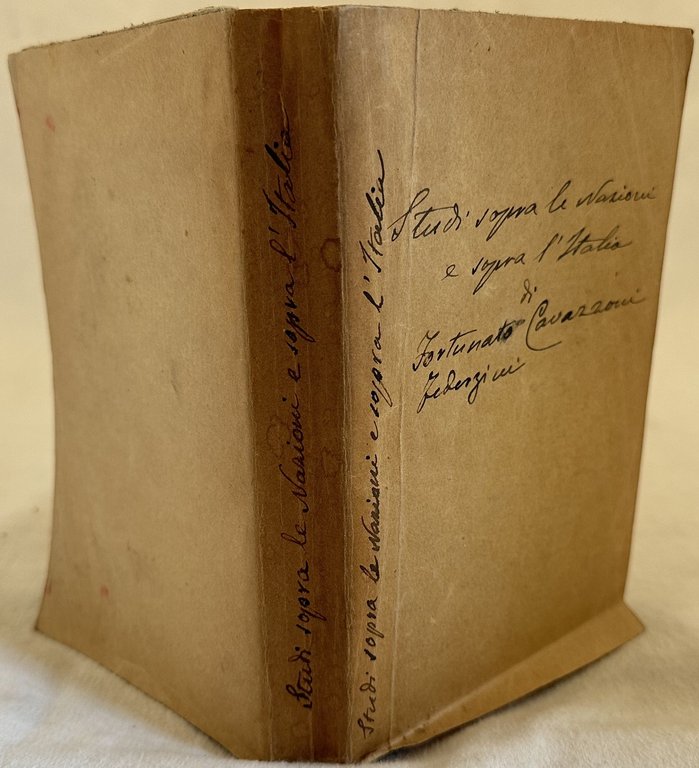 Studi sopra le Nazioni e sopra l'Italia
Studi sopra le Nazioni e sopra l'Italia
Studi sopra le Nazioni
e sopra l'Italia
di
Fortunato Cavazzoni
Federzini